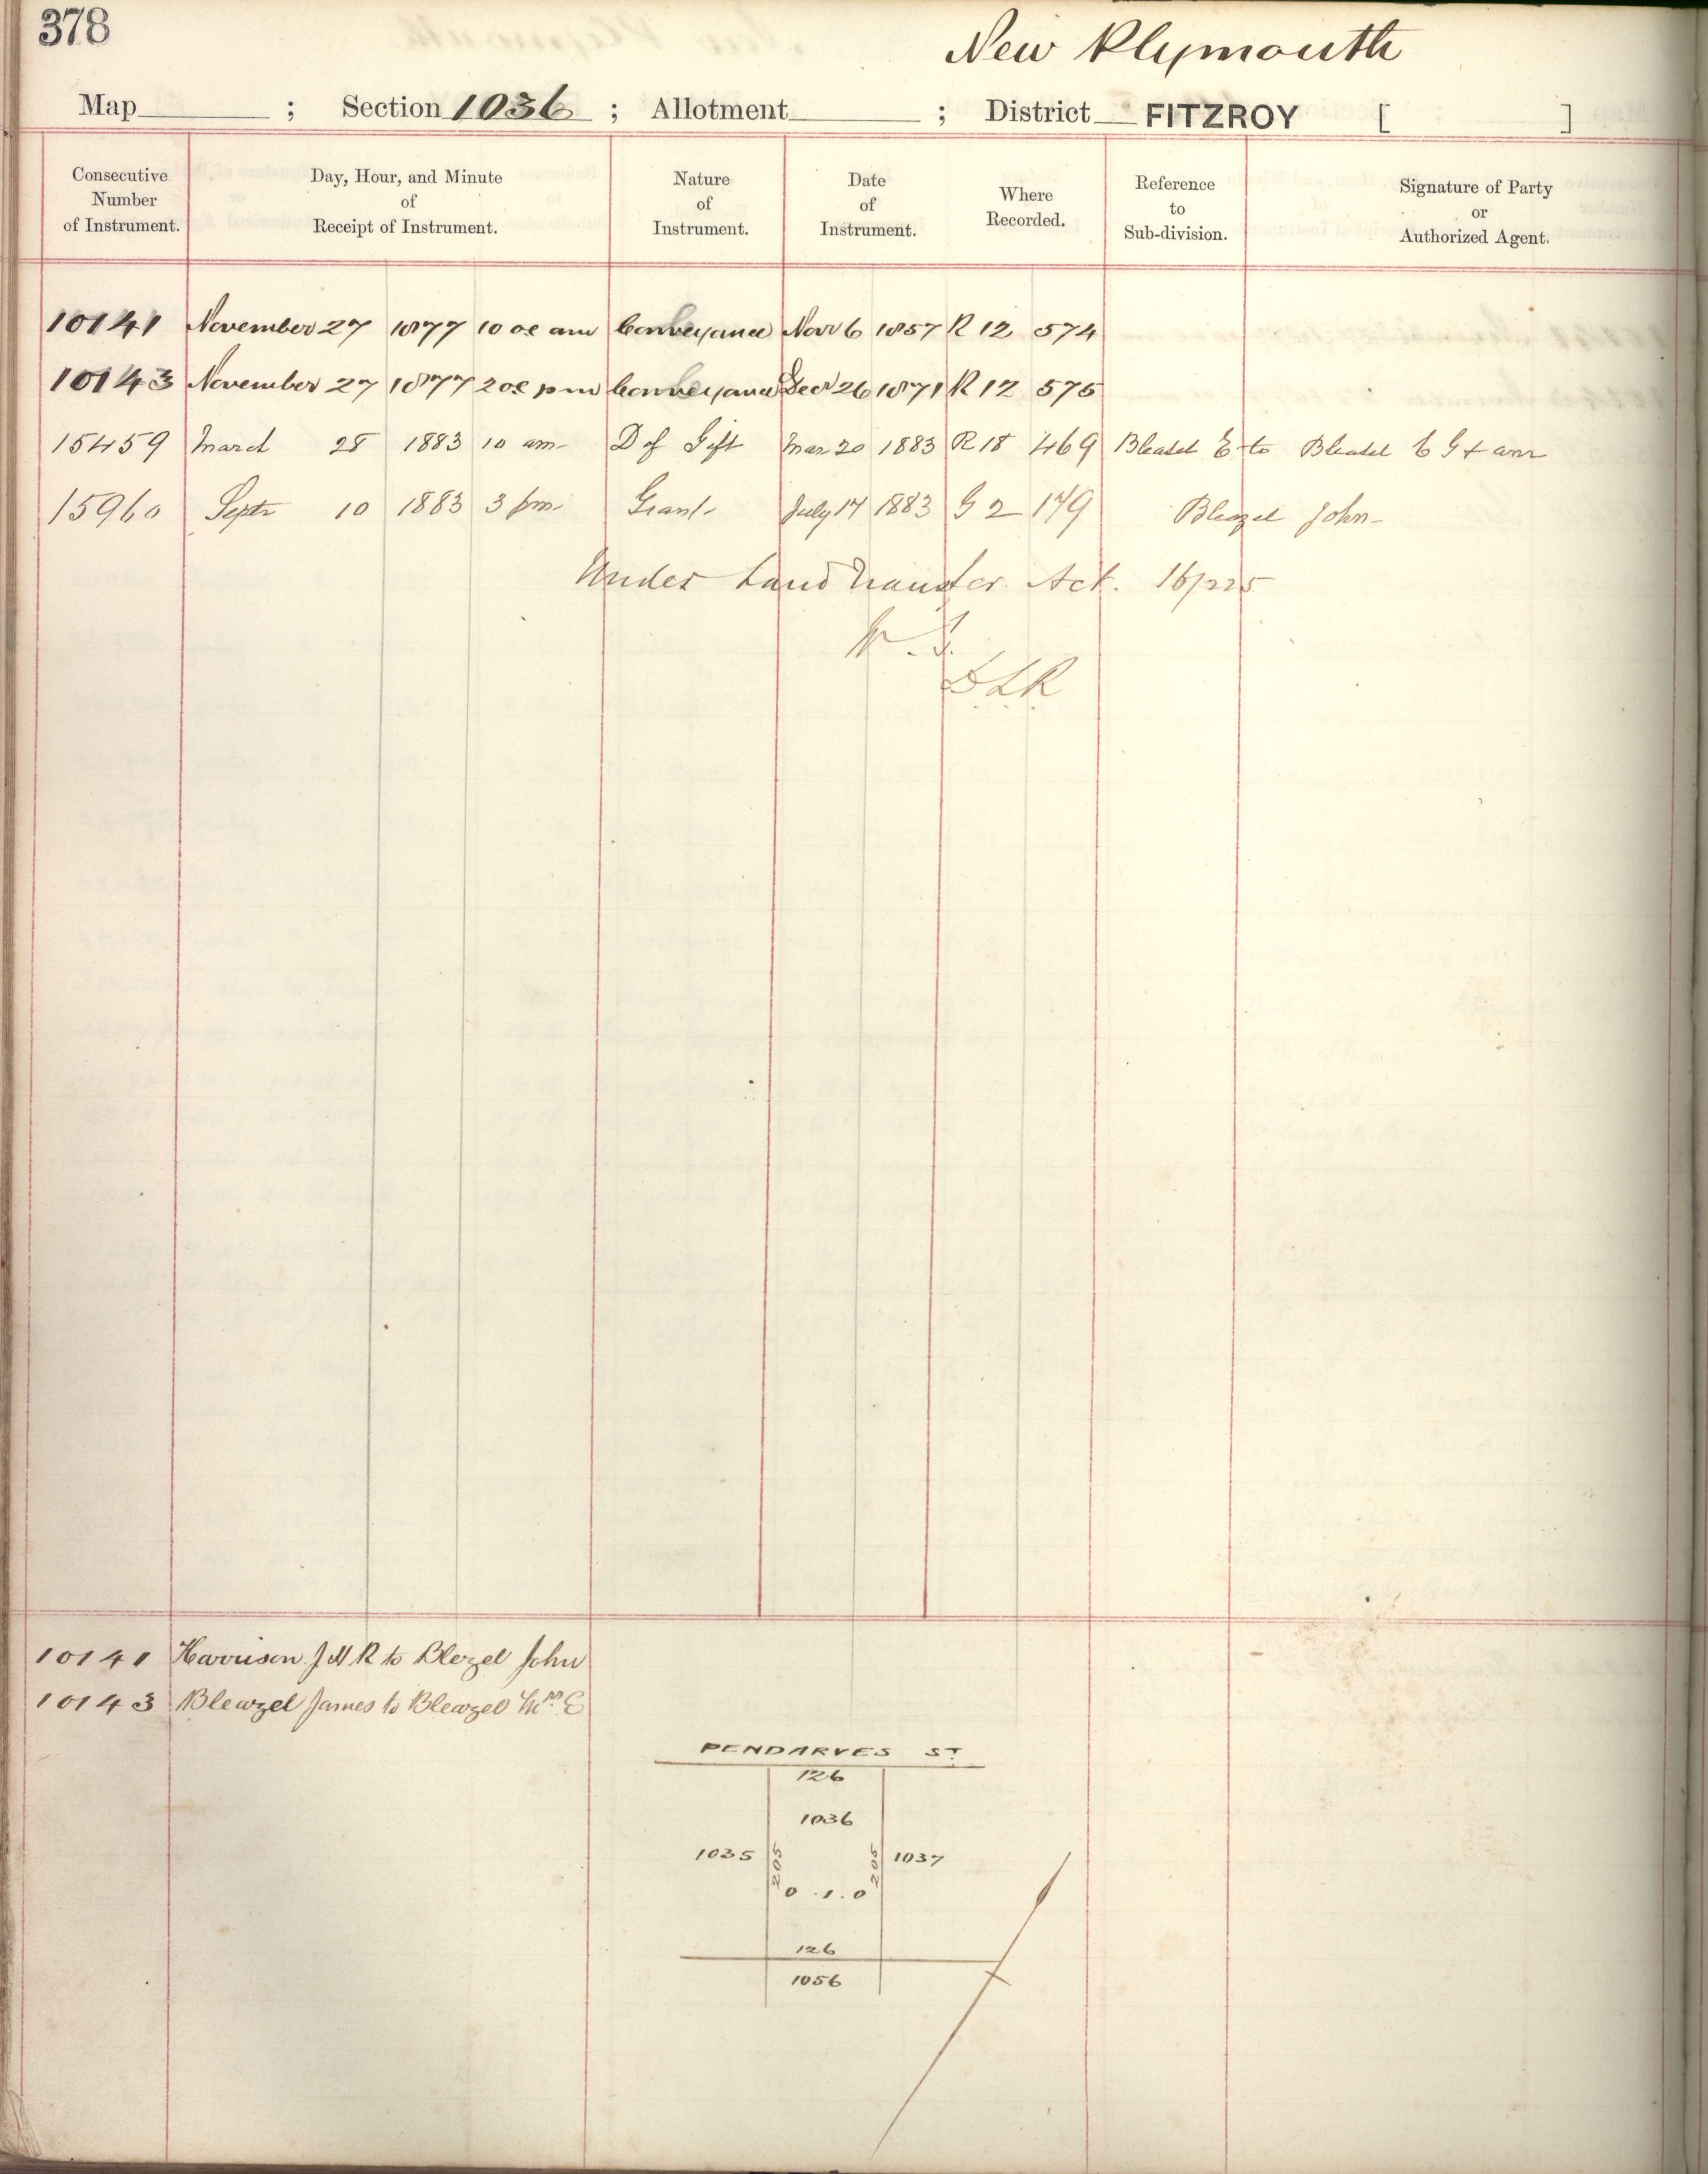 378
New Plymouth
Map ; Section 1036 ; Allotment ; District FITZROY [ ]
Consecutive Number of Instrument.
Day, Hour, and Minute of Receipt of Instrument.
Nature of Instrument.
Date of Instrument.
Where Recorded.
Reference to Sub-division.
Signature of Party or Authorized Agent.
10141 November 27 1877 10 oc am Conveyance Novr 6 1857 R 12 574
10143 November 27 1877 2 oc pm Conveyance Decr 26 1871 R 12 575
15459 March 28 1883 10 am D of Gift Mar 20 1883 R 18 469 E to C G & anr
15960 Septr 10 1883 3 pm Grant July 17 1883 G 2 179 Bleazel John
Under Land Transfer Act. 16/225
DLR
10141 Harrison J H R to Blezel John
10143 Bleazel James to Bleazel Mrs E
PENDARVES ST
126
1036
1035 205 205 1037
0.1.0
126
1056